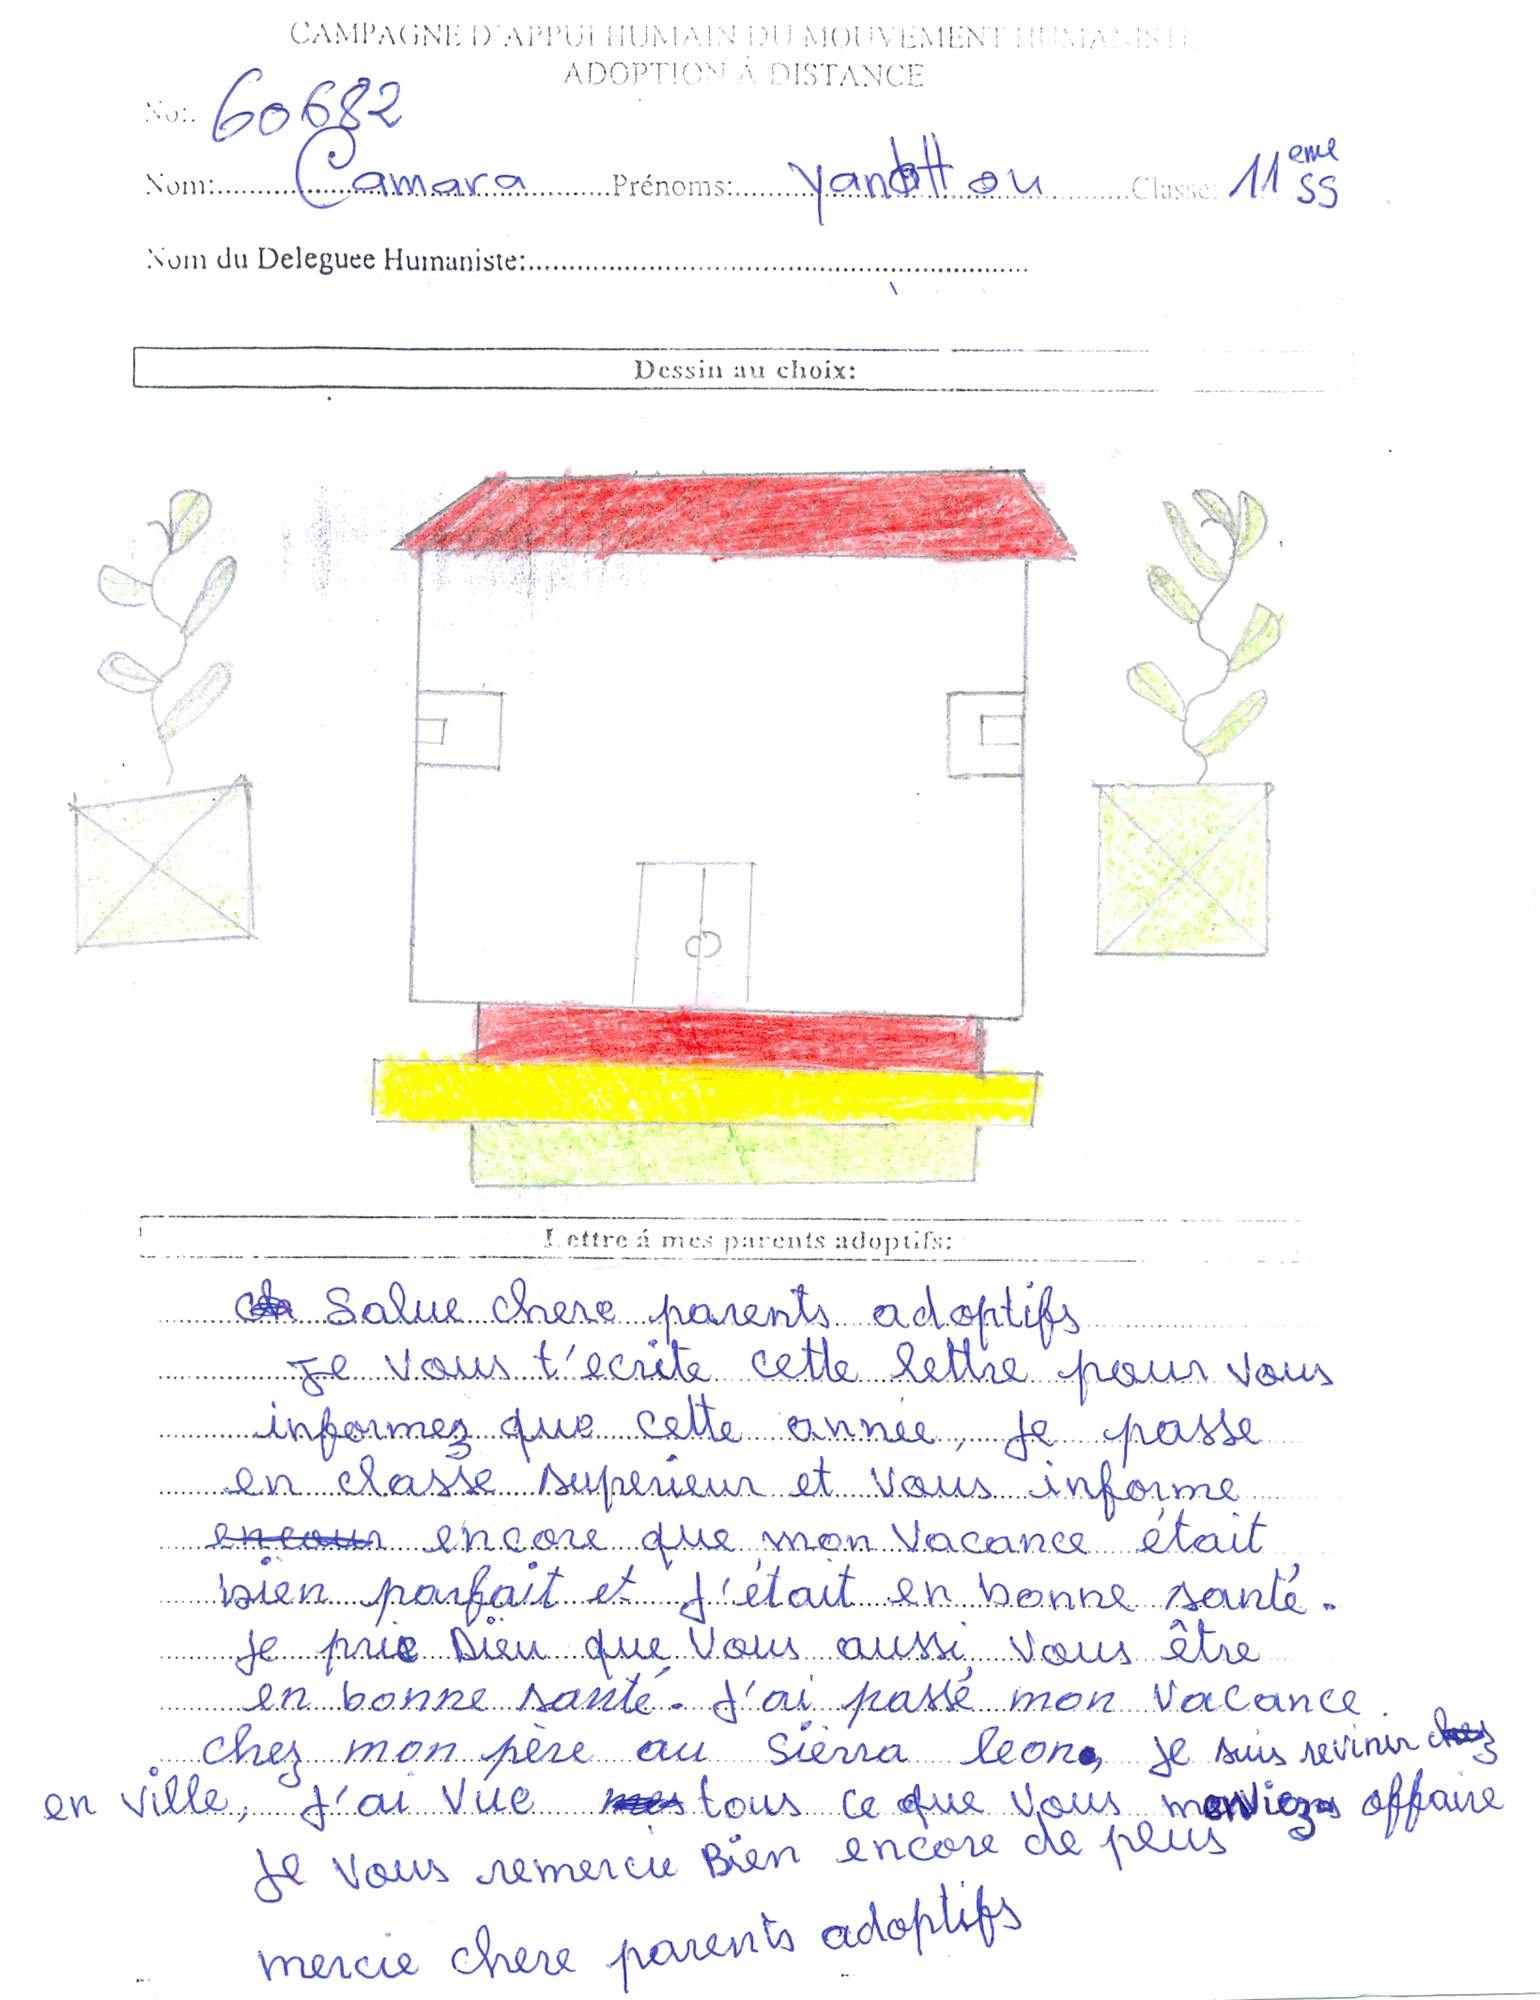 CAMPAGNE D'APPUI HUMAIN DU MOUVEMENT HUMANISTE
ADOPTION Á DISTANCE
No:. 60682
Nom: Camara Prénoms: Classe: 11 eme SS
Nom du Deleguee Humaniste:
Dessin au choix:
Lettre á mes parents adoptifs:
Salue chere parents adoptifs
Je vous t'ecrite cette lettre pour vous
informez que cette année, je passe
en classe superieur et vous informe
encore que mon vacance était
bien parfait et j'était en bonne santé.
Je prie Dieu que vous aussi vous être
en bonne santé. J'ai passé mon vacance
chez mon père au Sierra leon, je suis revinir
en ville, j'ai vue tous ce que vous affaire
Je vous remercie Bien encore de plus
mercie chere parents adoptifs